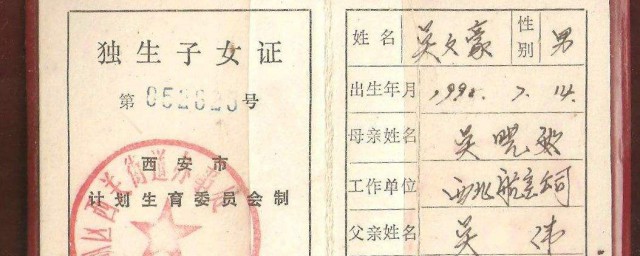 独生子女证
第 052623 号
西安市
计划生育委员会制
姓名 吴文豪 性别 男
出生年月 1991. 7. 14.
母亲姓名 吴晓
工作单位 西北航空公司
父亲姓名 吴伟
街道办